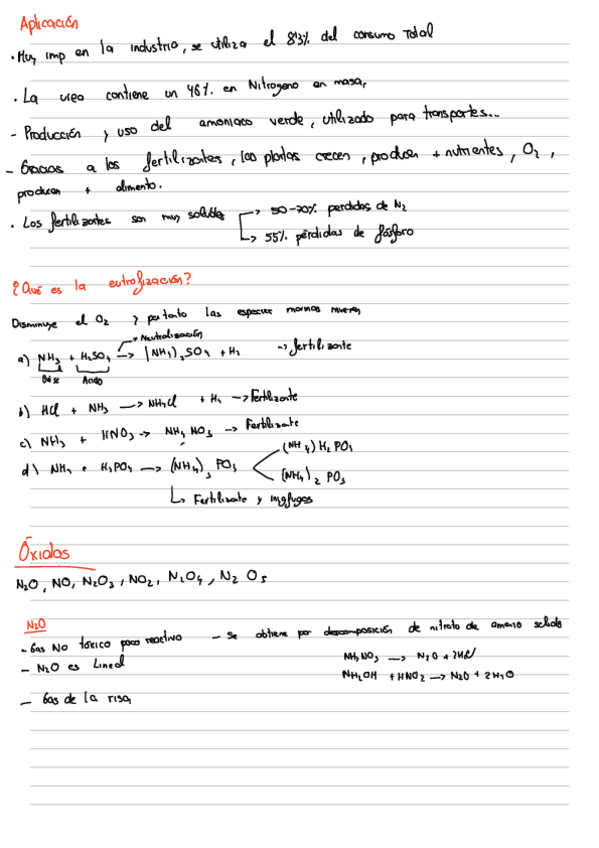 Aplicación
• Muy imp en la industria, se utiliza el 8'3% del consumo total
• La urea contiene un 46% en Nitrogeno en masa,
- Producción y uso del amoniaco verde, utilizado para transportes...
- Gracias a los fertilizantes, las plantas crecen, producen + nutrientes, O2,
producen + alimento.
• Los fertilizantes son muy solubles -> 50-70% perdidas de N2
-> 55% pérdidas de fósforo
¿Qué es la eutrofización?
Disminuye el O2 y por tanto las especies marinas mueren
-> Neutralización
a) NH3 + H2SO4 -> (NH4)2SO4 + H2 -> fertilizante
Base Acido
b) HCl + NH3 -> NH4Cl + H2 -> Fertilizante
c) NH3 + HNO3 -> NH4NO3 -> Fertilizante
(NH4)H2PO4
d) NH3 + H3PO4 -> (NH4)3PO4
(NH4)2 PO3
-> Fertilizante y ingfugos
Óxidos
N2O, NO, N2O3, NO2, N2O4, N2O5
N2O
- Gas No tóxico poco reactivo - Se obtiene por descomposición de nitrato de amonio solido
- N2O es Lineal
NH4NO3 -> N2O + 2H2O
NH2OH + HNO2 -> N2O + 2H2O
- Gas de la risa,